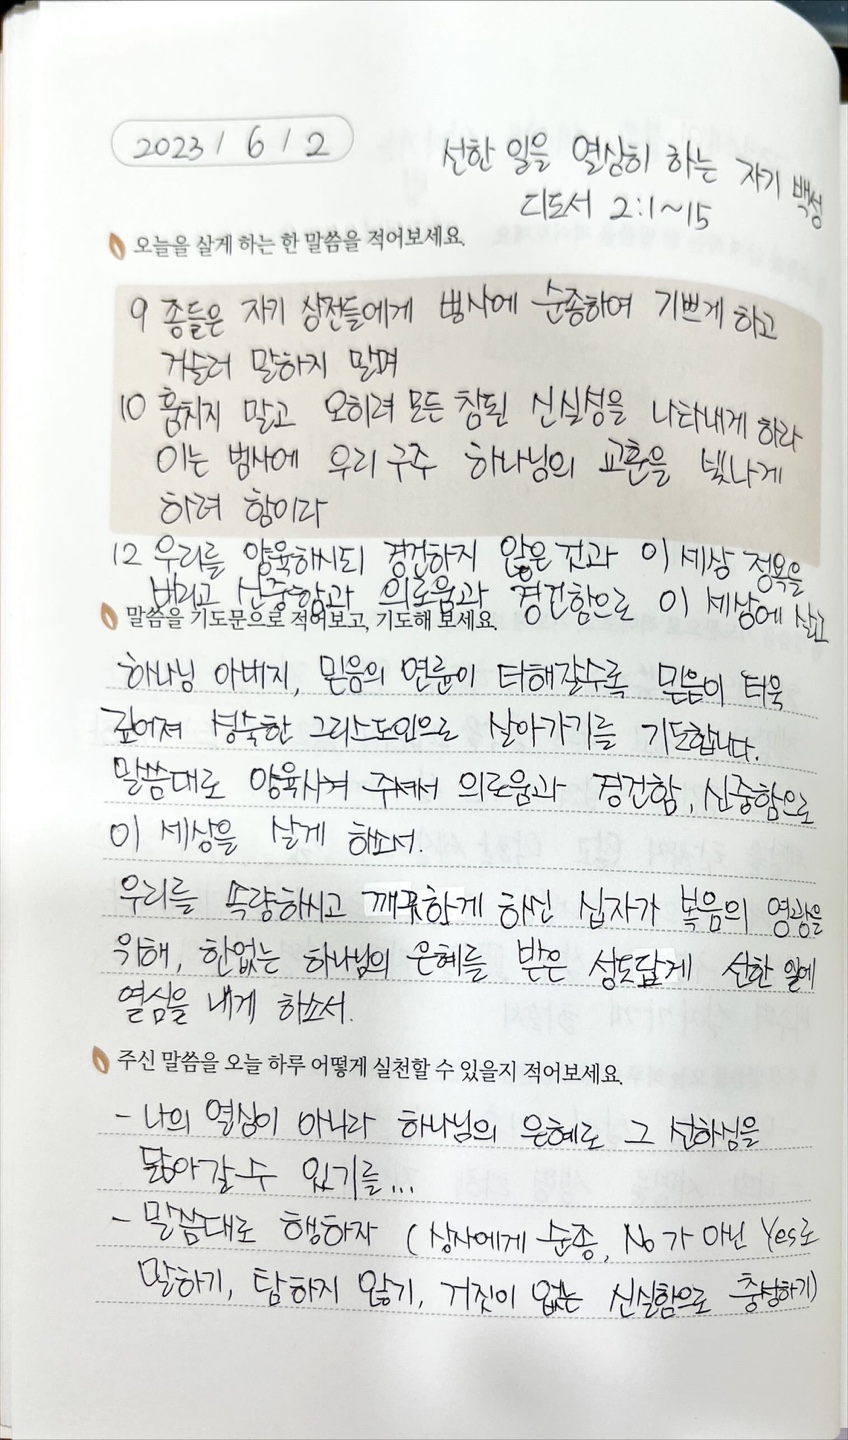 2023 / 6 / 2
선한 일을 열심히 하는 자기 백성
디도서 2:1~15
오늘을 살게 하는 한 말씀을 적어보세요.
9 종들은 자기 상전들에게 범사에 순종하여 기쁘게 하고
거슬러 말하지 말며
10 훔치지 말고 오히려 모든 참된 신실성을 나타내게 하라
이는 범사에 우리 구주 하나님의 교훈을 빛나게
하려 함이라
12 우리를 양육하시되 경건하지 않은 것과 이 세상 정욕을
버리고 신중함과 의로움과 경건함으로 이 세상에 살고
말씀을 기도문으로 적어보고, 기도해 보세요.
하나님 아버지, 믿음의 연륜이 더해갈수록 믿음이 더욱
깊어져 성숙한 그리스도인으로 살아가기를 기도합니다.
말씀대로 양육시켜 주셔서 의로움과 경건함, 신중함으로
이 세상을 살게 하소서.
우리를 속량하시고 깨끗하게 하신 십자가 복음의 영광을
위해, 한없는 하나님의 은혜를 받은 성도답게 선한 일에
열심을 내게 하소서.
주신 말씀을 오늘 하루 어떻게 실천할 수 있을지 적어보세요.
- 나의 열심이 아니라 하나님의 은혜로 그 선하심을
닮아갈 수 있기를...
- 말씀대로 행하자 (상사에게 순종, No가 아닌 Yes로
말하기, 탐하지 않기, 거짓이 없는 신실함으로 충성하기)